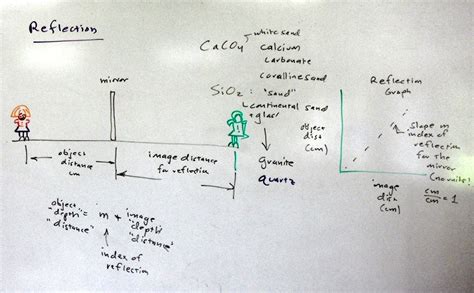 Reflection
CaCO4 white sand
calcium
carbonate
coralline sand
SiO2 : "sand"
continental sand
+ glass
granite
quartz
mirror
object
distance
cm
image distance
for reflection
object
"depth" = m * image
"distance" "depth"
"distance"
index of
reflection
Reflection
Graph
object
dist
(cm)
Slope m
index of
reflection
for the
mirror
(no units)
image
dist
(cm)
cm/cm = 1